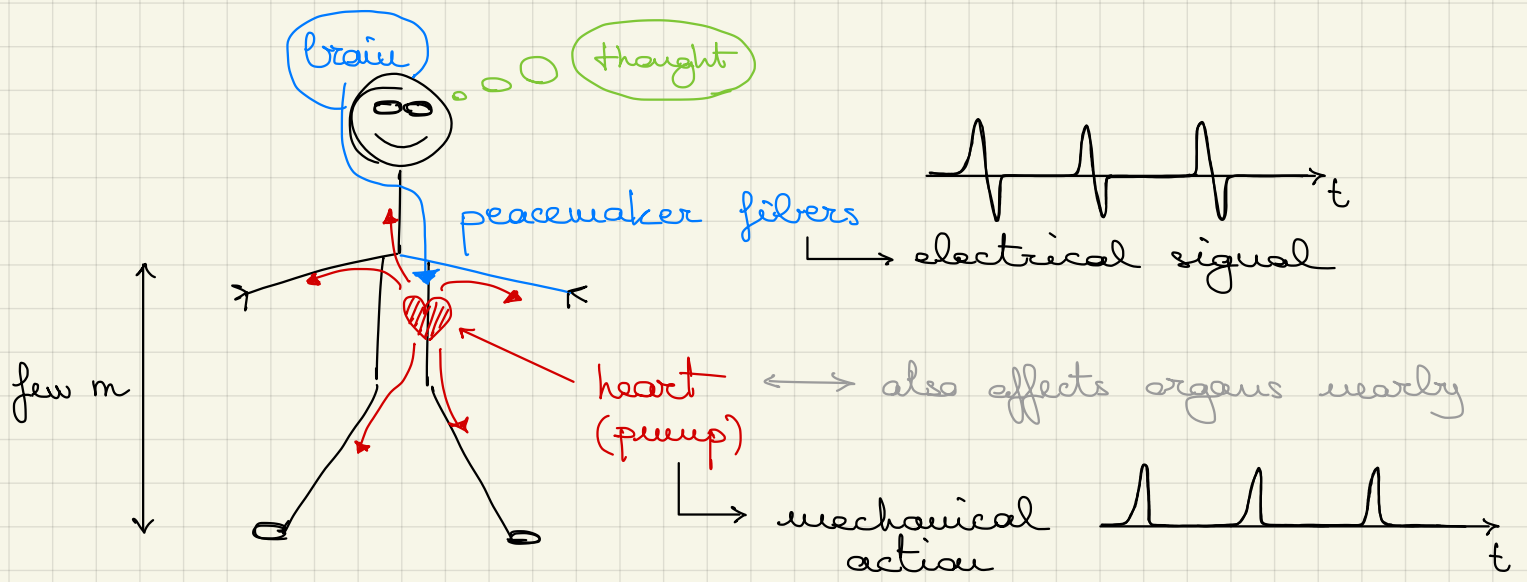 brain
thought
t
peacemaker fibers
electrical signal
few m
heart
also effects organs nearby
(pump)
mechanical
action
t